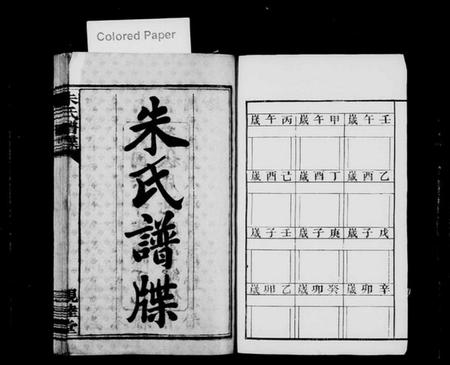 Colored Paper
朱氏譜牒
朱氏譜牒
壬午歲 甲午歲 丙午歲
乙酉歲 丁酉歲 己酉歲
戊子歲 庚子歲 壬子歲
辛卯歲 癸卯歲 乙卯歲